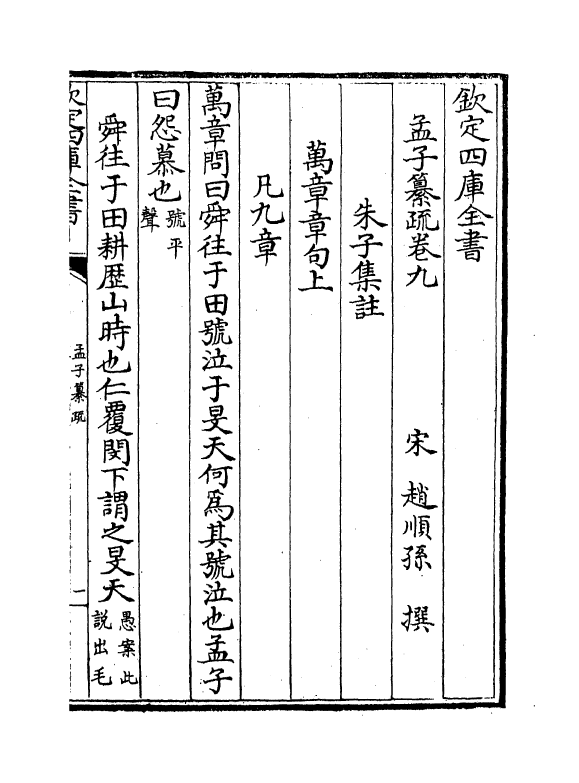 欽定四庫全書
孟子纂疏卷九　宋　趙順孫　撰
朱子集註
萬章章句上
凡九章
萬章問曰舜往于田號泣于旻天何爲其號泣也孟子
曰怨慕也號平聲
舜往于田耕歴山時也仁覆閔下謂之旻天愚案此說出毛
欽定四庫全書
孟子纂疏
一